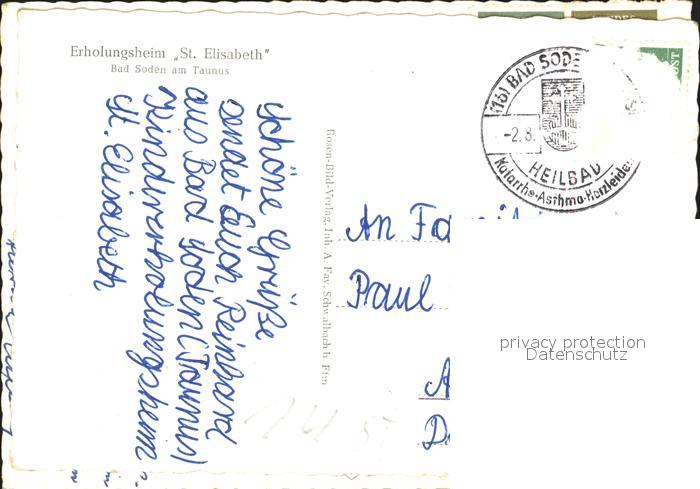 Erholungsheim „St. Elisabeth"
Bad Soden am Taunus
schöne Grüße
sendet Euch Reinhard
aus Bad Soden (Taunus)
Kindererholungsheim
St. Elisabeth
Rosen-Bild-Verlag, Inh. A. Fay, Schwalbach b. Ffm
(16) BAD SODE
-2.8.
HEILBAD
Katarrhe·Asthma·Herzleide
An Fa
Paul
A
D
privacy protection
Datenschutz